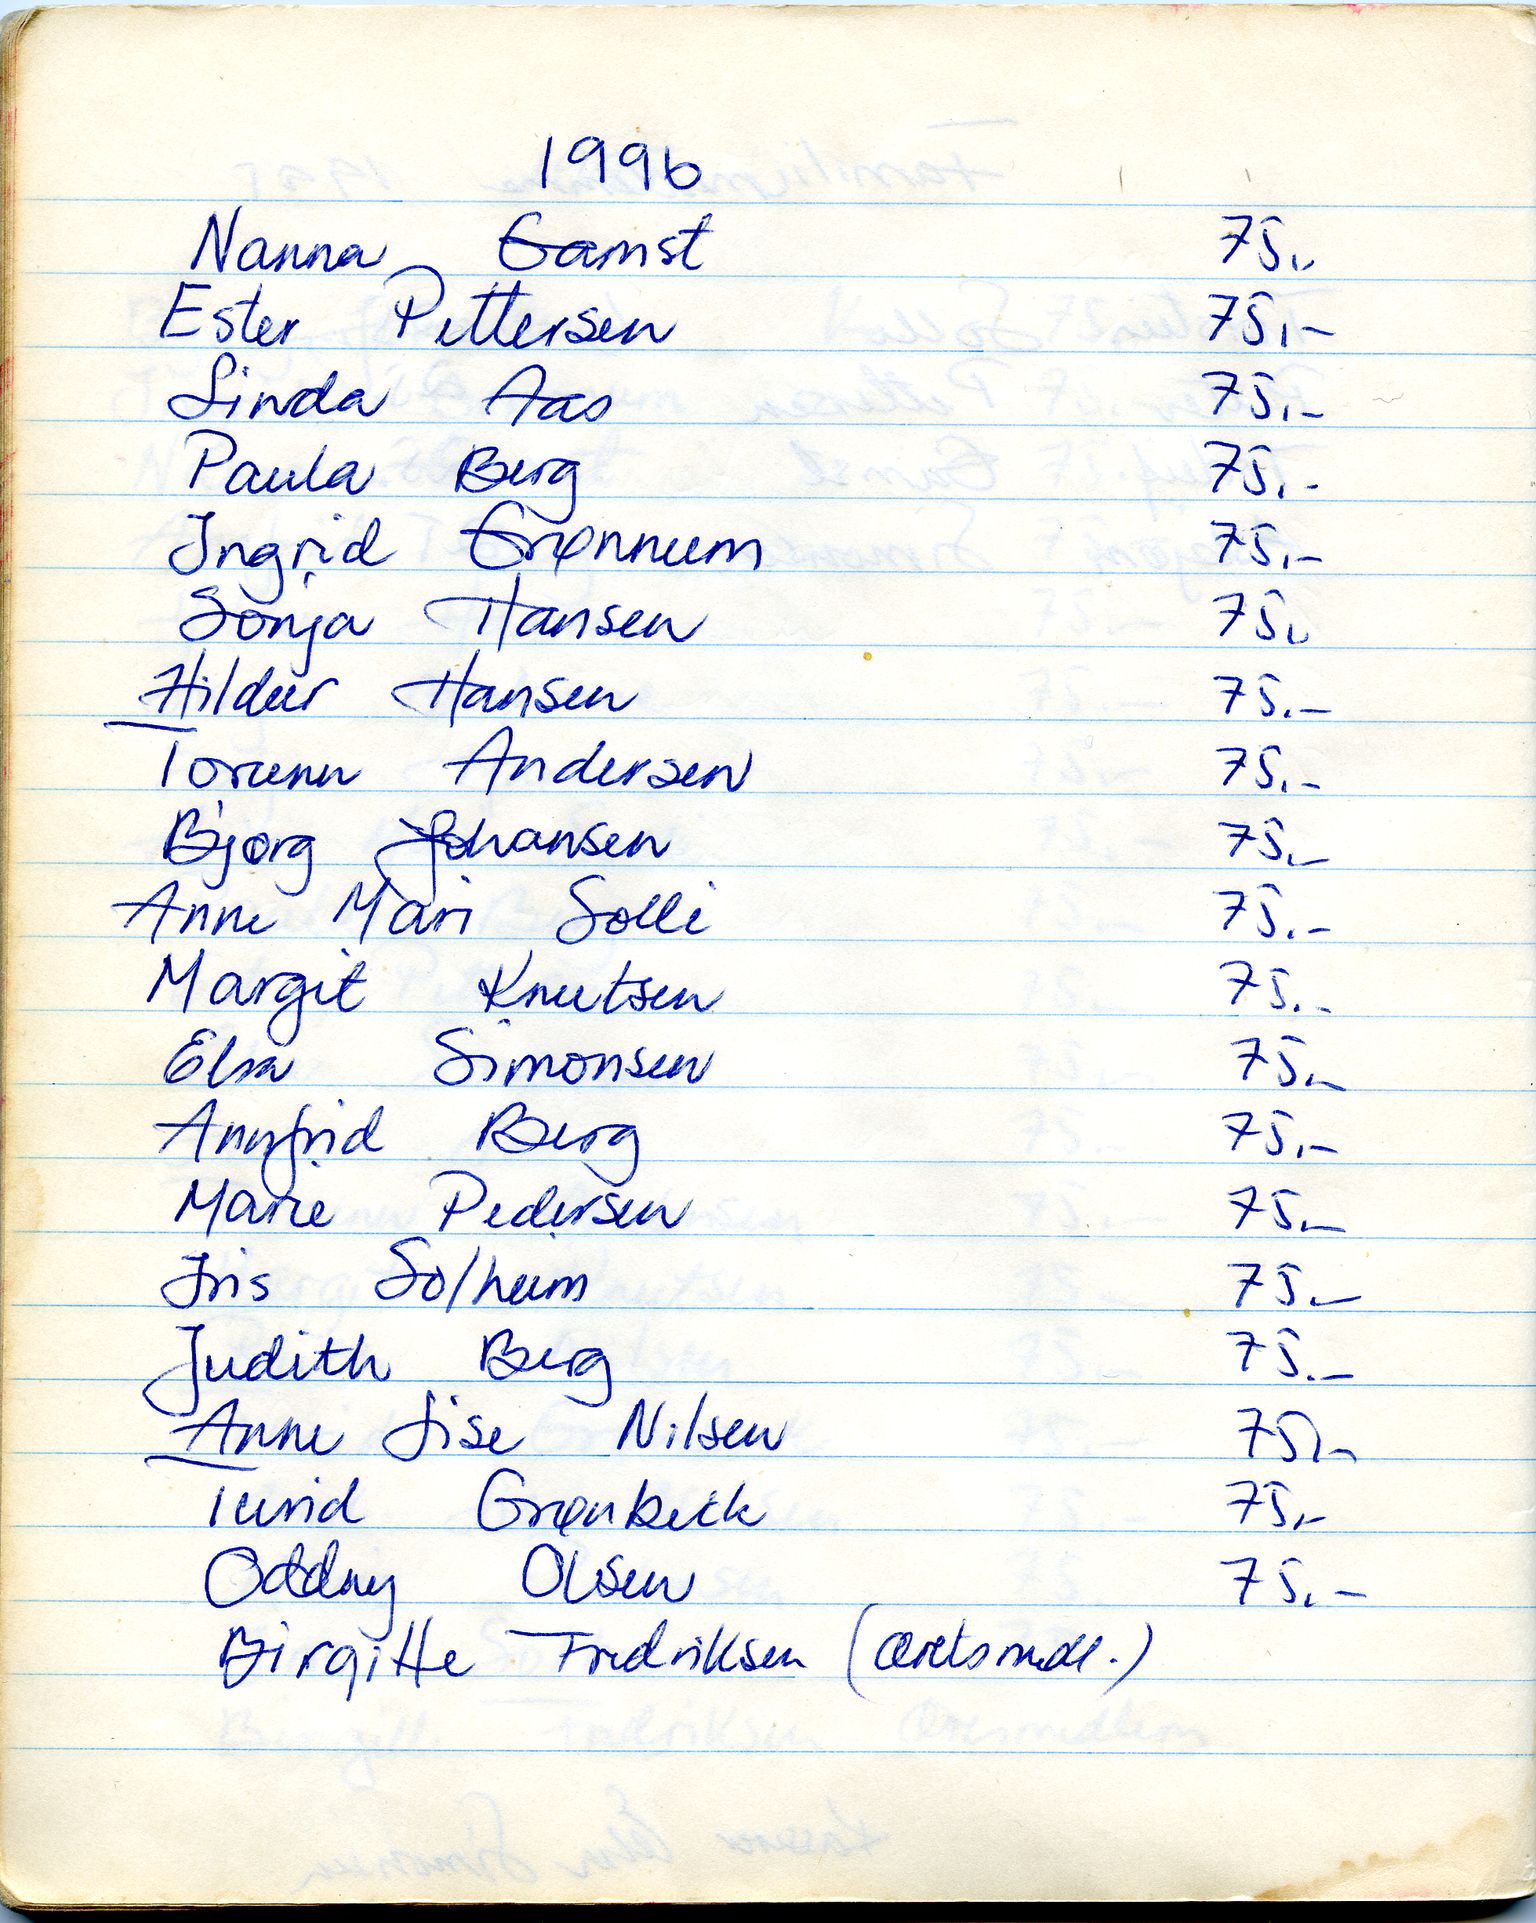 1996
Nanna Gamst 75,-
Ester Pettersen 75,-
Linda Aas 75,-
Paula Berg 75,-
Ingrid Grønnum 75,-
Sonja Hansen 75,-
Hildur Hansen 75,-
Torunn Andersen 75,-
Bjørg Johansen 75,-
Anne Mari Solli 75,-
Margit Knutsen 75,-
Elsa Simonsen 75,-
Annfrid Berg 75,-
Marie Pedersen 75,-
Iris Solheim 75,-
Judith Berg 75,-
Anne Lise Nilsen 75,-
Turid Grønbeck 75,-
Oddny Olsen 75,-
Birgitte Fredriksen (æretsmedl.)